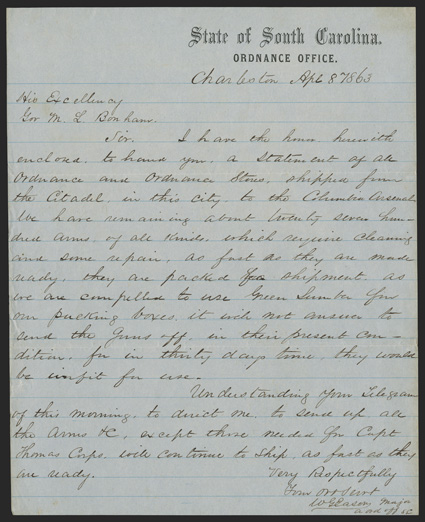 State of South Carolina.
ORDNANCE OFFICE.
Charleston Apl 8 1863
His Excellency
Gov M. L. Bonham.
Sir. I have the honor herewith
enclosed, to hand you, a Statement of all
Ordnance and Ordnance Stores, shipped from
the Citadel, in this city, to the Columbia Arsenal
We have remaining about twenty seven hun-
dred arms, of all kinds, which require cleaning
and some repair, as fast as they are made
ready, they are packed for shipment, as
we are compelled to use Green Lumber for
our packing boxes, it will not answer to
send the Guns off, in their present con-
dition, for in thirty days time, they would
be unfit for use.
Understanding your Telegram
of this morning, to direct me, to send up all
the Arms &c, except those needed for Capt
Thomas Corps. will continue to ship, as fast as they
are ready.
Very Respectfully
Your Obt Servt
Eason Major